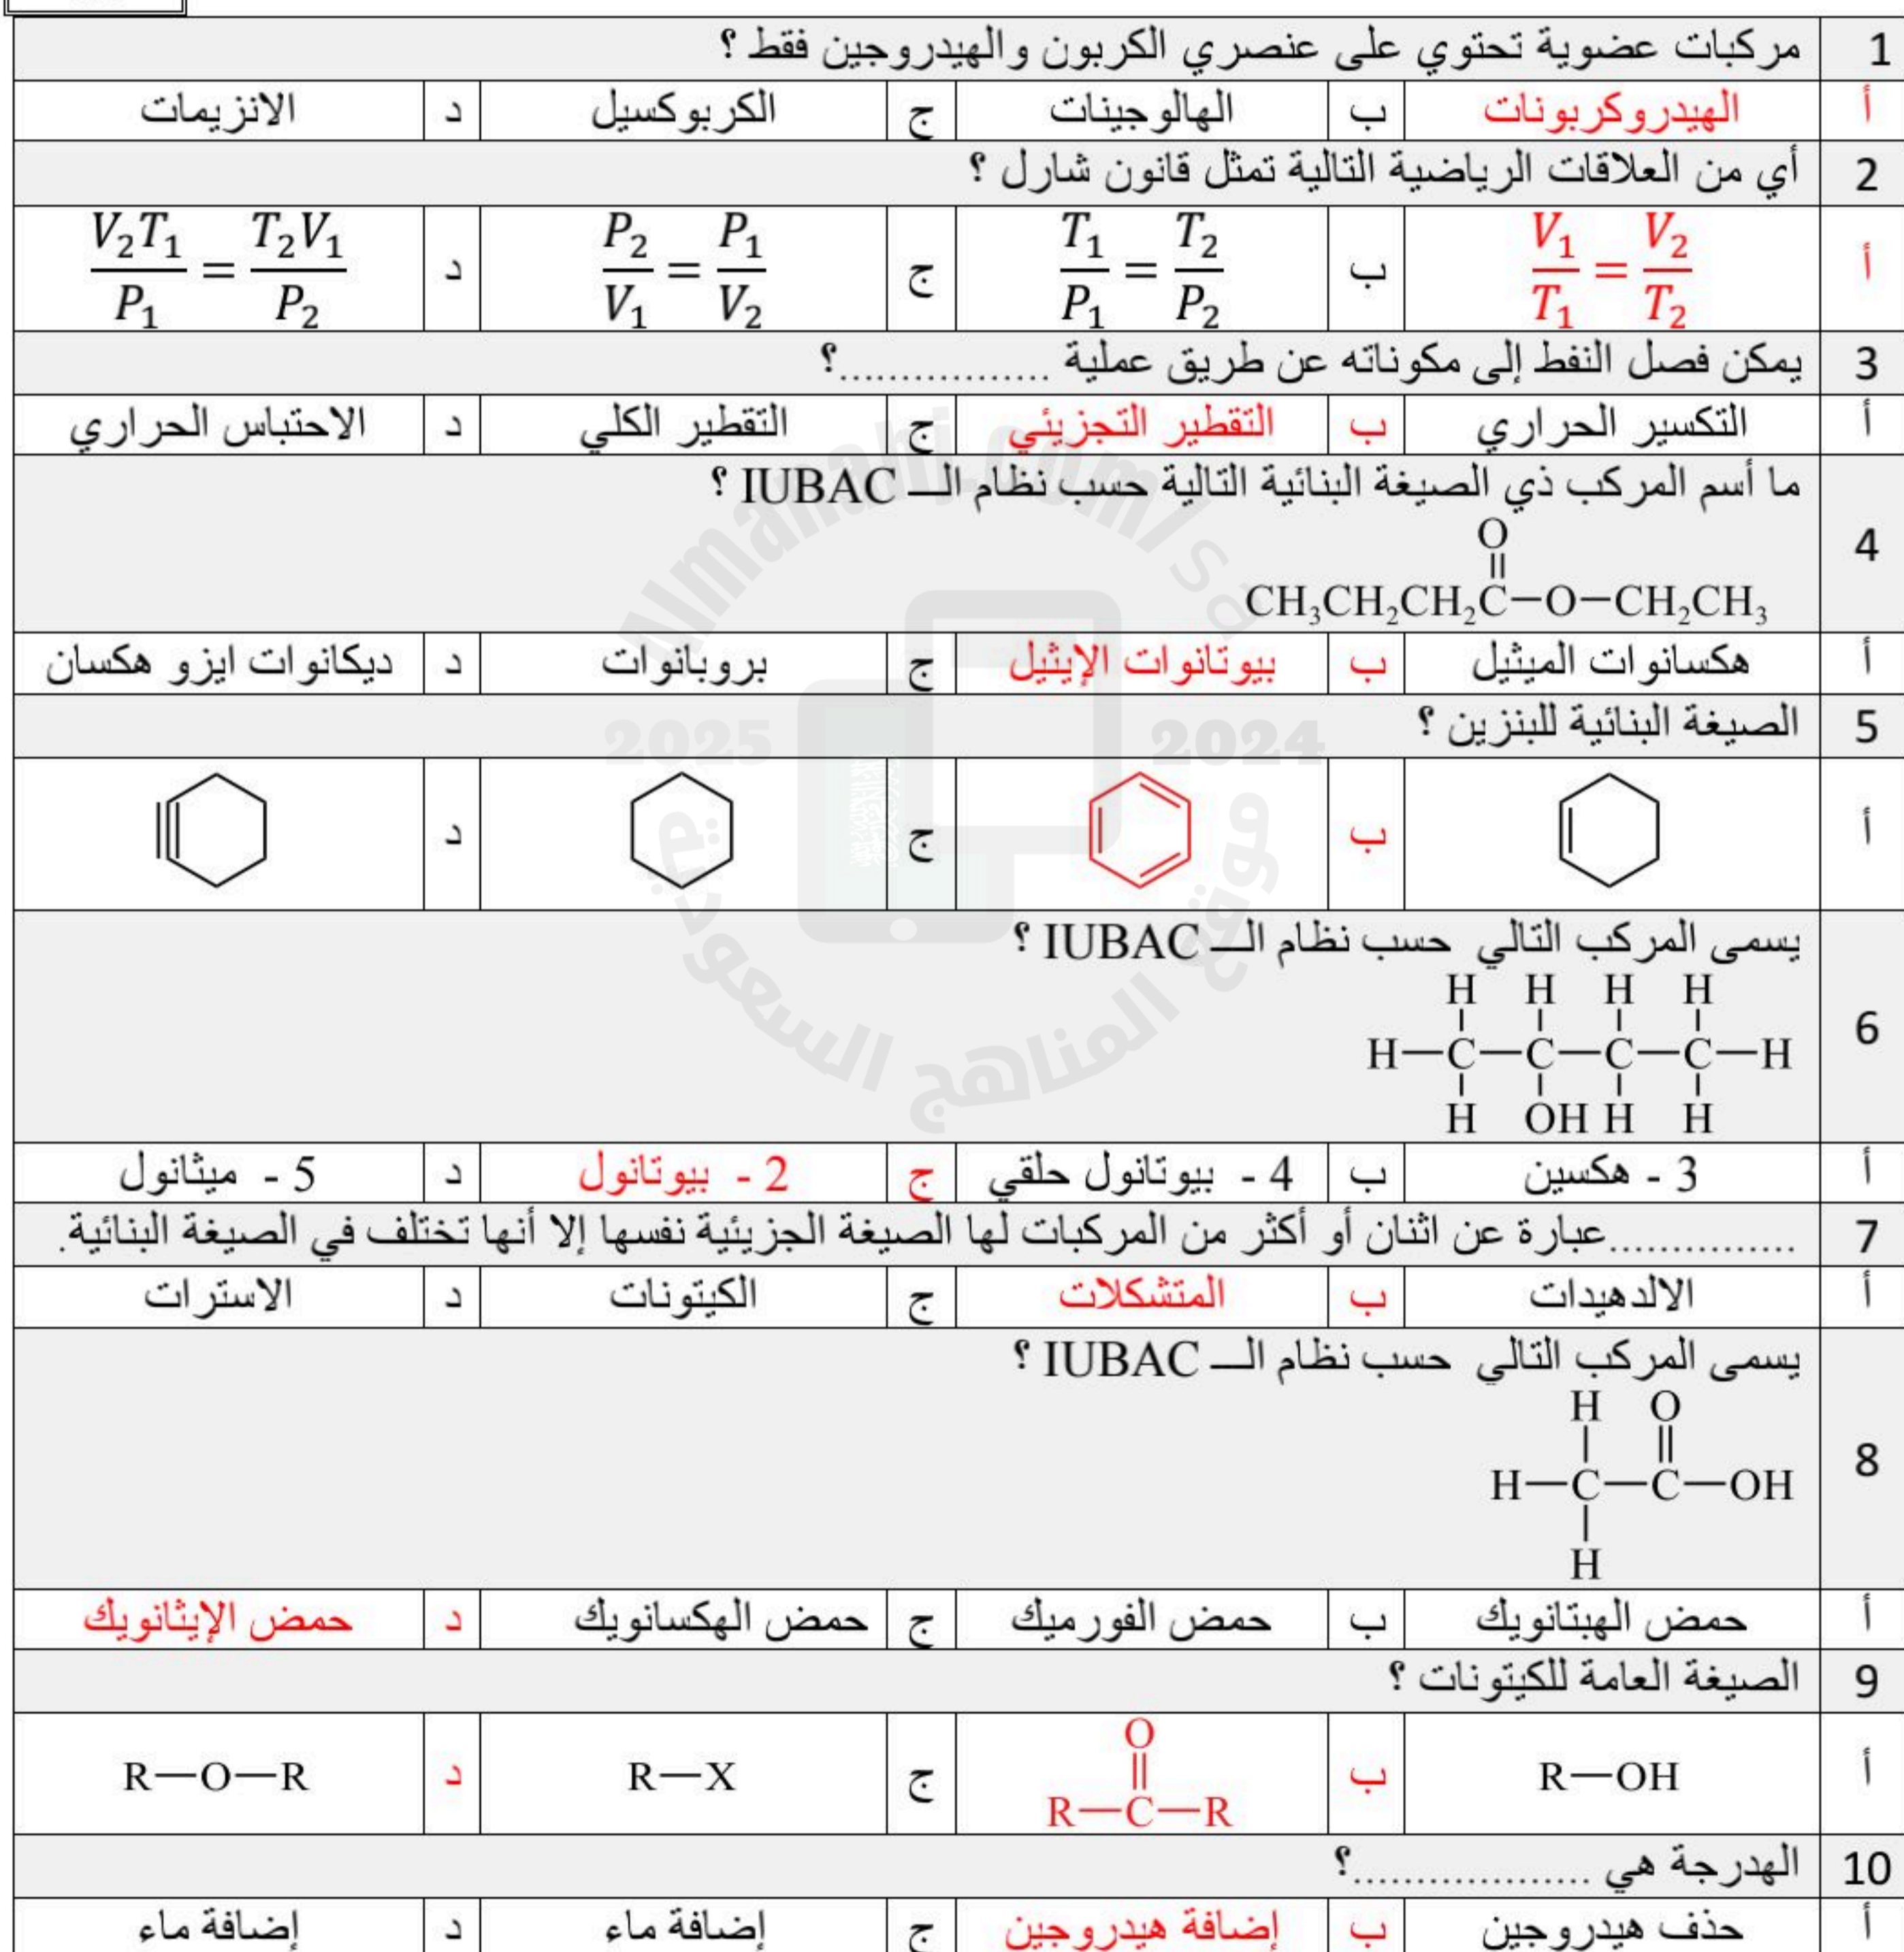 1 مركبات عضوية تحتوي على عنصري الكربون والهيدروجين فقط ؟
أ الهيدروكربونات ب الهالوجينات ج الكربوكسيل د الانزيمات
2 أي من العلاقات الرياضية التالية تمثل قانون شارل ؟
أ V₁/T₁ = V₂/T₂ ب T₁/P₁ = T₂/P₂ ج P₂/V₁ = P₁/V₂ د V₂T₁/P₁ = T₂V₁/P₂
3 يمكن فصل النفط إلى مكوناته عن طريق عملية .................؟
أ التكسير الحراري ب التقطير التجزيئي ج التقطير الكلي د الاحتباس الحراري
4 ما أسم المركب ذي الصيغة البنائية التالية حسب نظام الـــ IUBAC ؟
O
CH₃CH₂CH₂C–O–CH₂CH₃
أ هكسانوات الميثيل ب بيوتانوات الإيثيل ج بروبانوات د ديكانوات ايزو هكسان
5 الصيغة البنائية للبنزين ؟
أ ب ج د
6 يسمى المركب التالي حسب نظام الـــ IUBAC ؟
H H H H
H—C—C—C—C—H
H OH H H
أ 3 - هكسين ب 4 - بيوتانول حلقي ج 2 - بيوتانول د 5 - ميثانول
7 ...............عبارة عن اثنان أو أكثر من المركبات لها الصيغة الجزيئية نفسها إلا أنها تختلف في الصيغة البنائية.
أ الالدهيدات ب المتشكلات ج الكيتونات د الاسترات
8 يسمى المركب التالي حسب نظام الـــ IUBAC ؟
H O
H—C—C—OH
H
أ حمض الهبتانويك ب حمض الفورميك ج حمض الهكسانويك د حمض الإيثانويك
9 الصيغة العامة للكيتونات ؟
O
أ R—OH ب R—C—R ج R—X د R—O—R
10 الهدرجة هي ...................؟
أ حذف هيدروجين ب إضافة هيدروجين ج إضافة ماء د إضافة ماء
Almanahj.com/sa
2025 2024
موقع المناهج السعودية